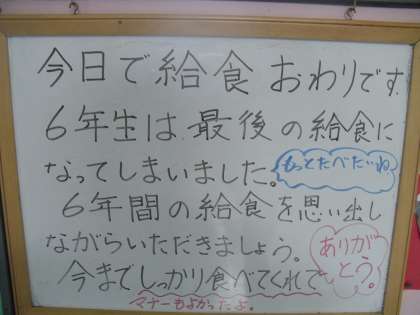 今日で給食おわりです.
6年生は最後の給食に
なってしまいました。
もっとたべたいね
6年間の給食を思い出し
ながらいただきましょう。
今までしっかり食べてくれて
ありが
とう。
マナーもよかったよ。